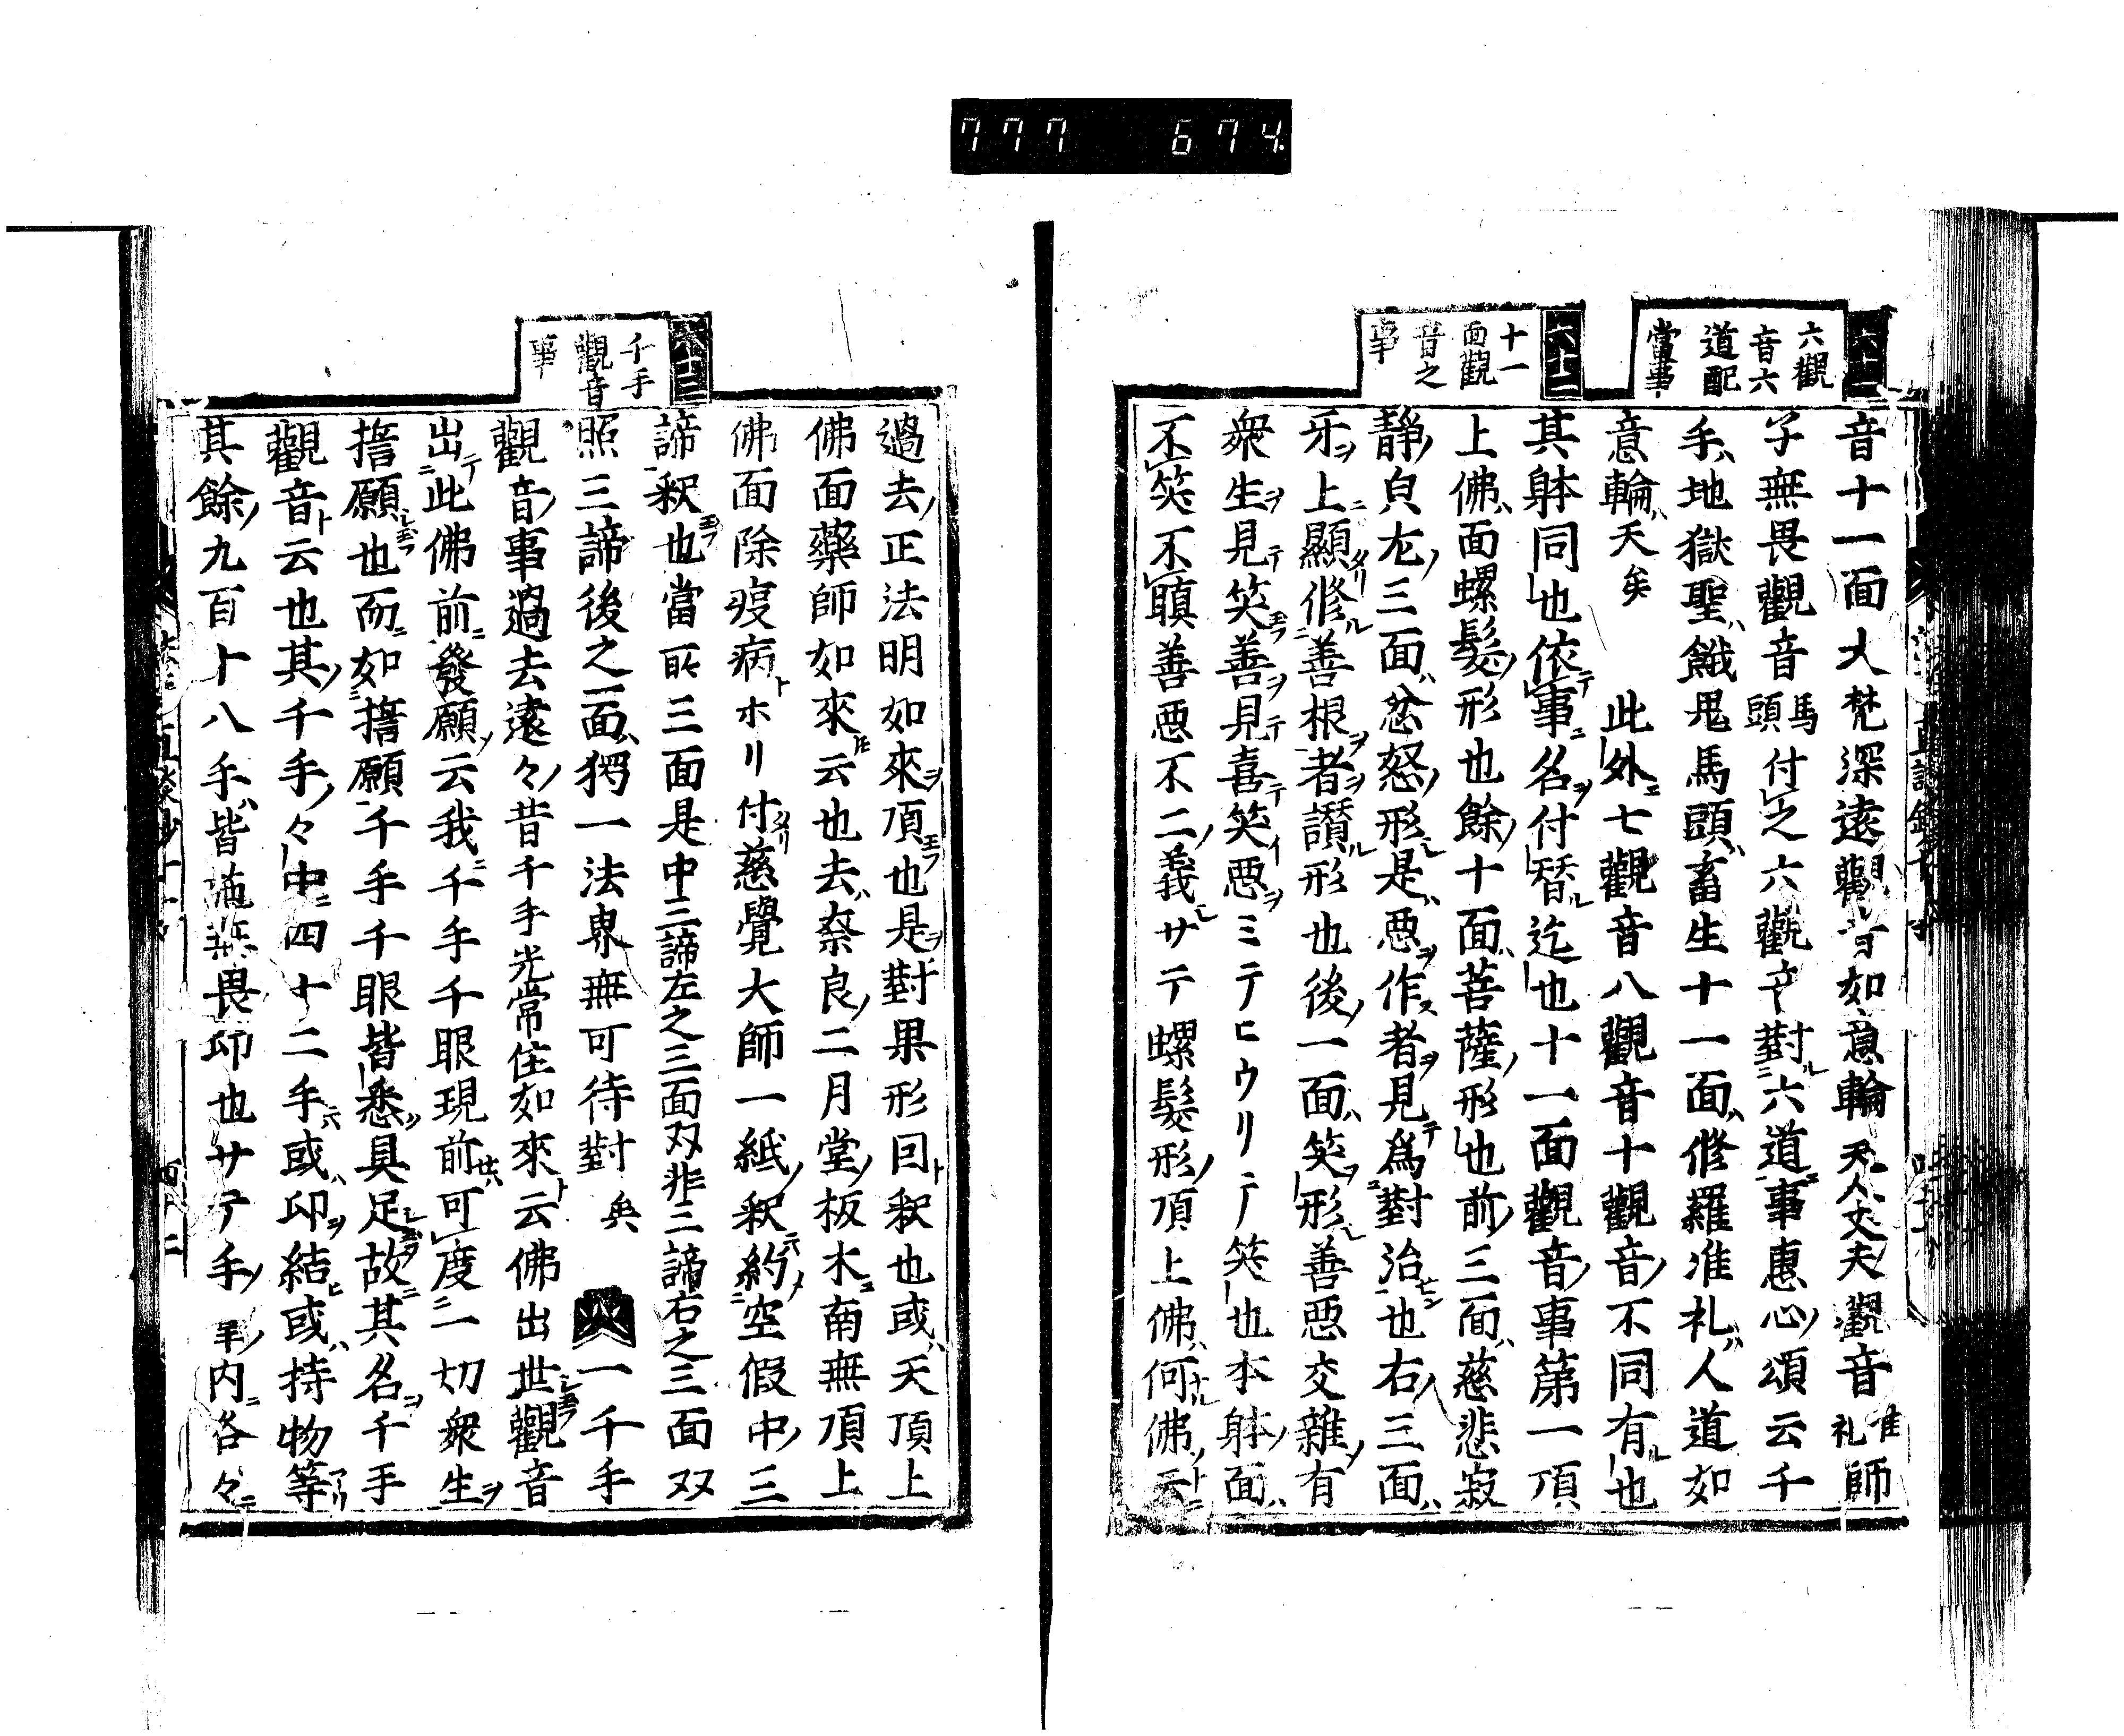 777 674
六十一
六觀
音六
道配
當事
六十二
十一
面觀
音之
事
音十一面大梵深遠觀音如意輪天人丈夫觀音准礼師
子無畏觀音馬頭付之六觀音對六道事惠心頌云千
手地獄聖餓鬼馬頭畜生十一面修羅准礼人道如
意輪天矣 此外七觀音八觀音十觀音不同有也
其躰同也依事名付替迄也十一面觀音事第一頂
上佛面螺髮形也餘十面菩薩形也前三面慈悲寂
靜皃左三面忿怒形是惡作者見爲對治也右三面
牙上顯修善根者讃形也後一面笑形善惡交雜有
衆生見笑善見喜笑惡ミテヒウリニ笑也本躰面
不笑不瞋善惡不二義サテ螺髮形頂上佛何佛云
六十三
千手
觀音
事
過去正法明如來頂也是對果形回釈也或天頂上
佛面藥師如來云也去奈良二月堂板木南無頂上
佛面除疫病ホリ付慈覺大師一紙釈約空假中三
諦釈也當所三面是中三諦左之三面双非三諦右之三面双
照三諦後之一面獨一法界無可待對矣 一千手
觀音事過去遠々昔千手光常住如來云佛出世觀音
出此佛前發願云我千手千眼現前可度一切衆生
擔願也而如擔願千手千眼皆悉具足故其名千手
觀音云也其千手々中四十二手或印結或持物等
其餘九百十八手皆施無畏印也サテ手内各々